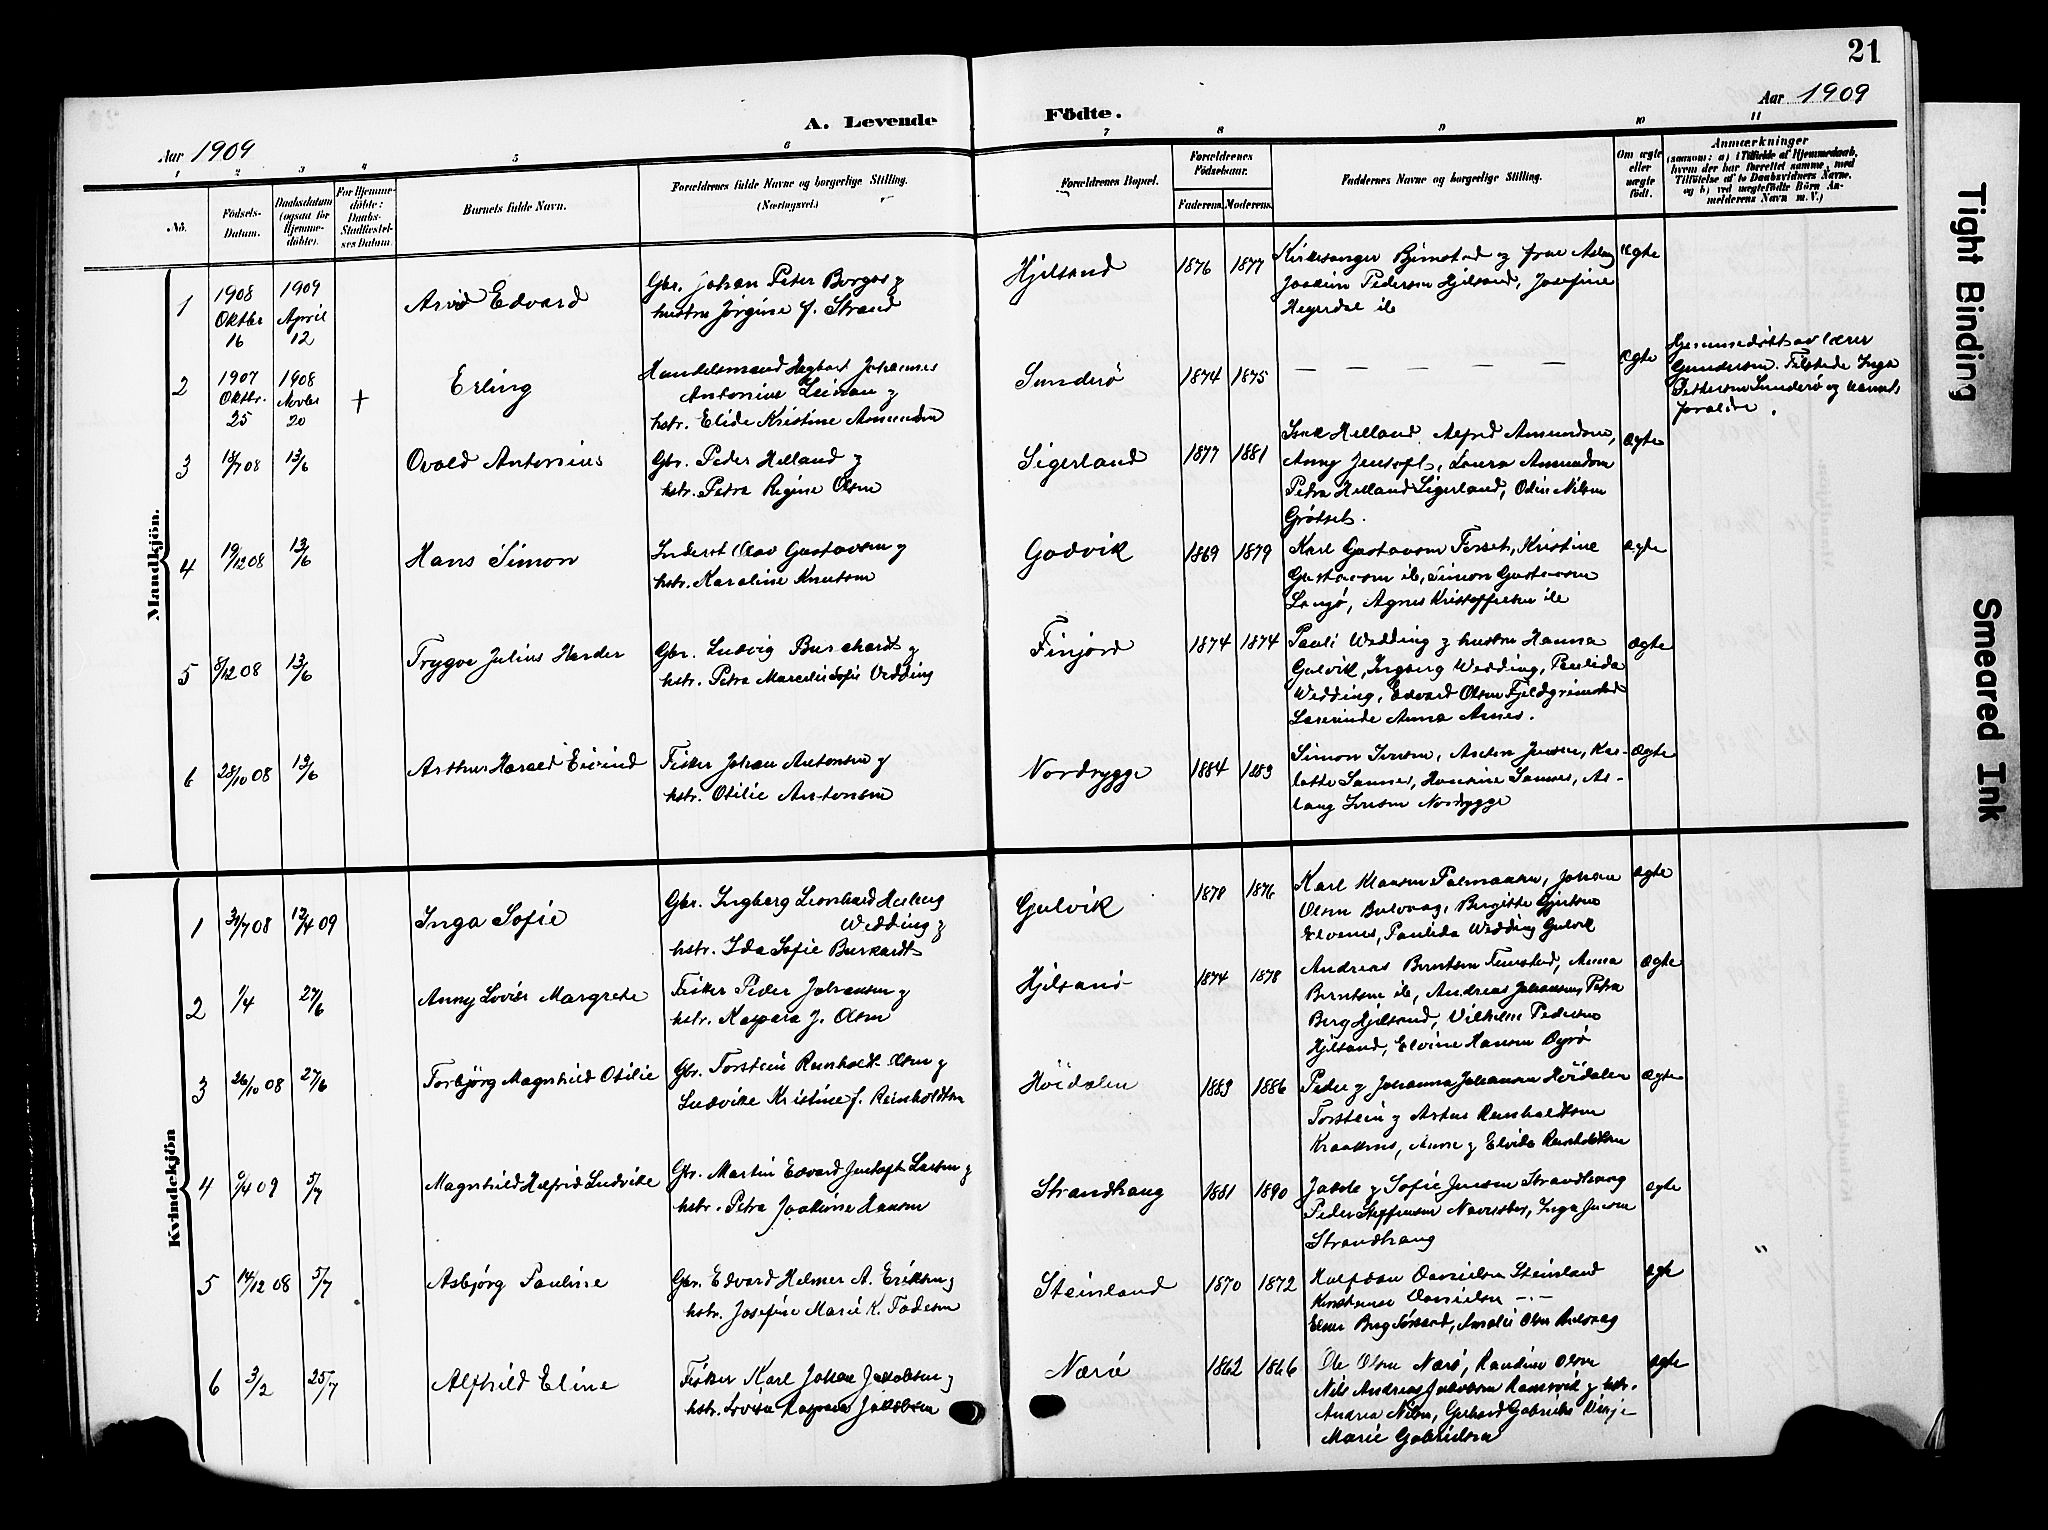 21
Aar 1909
A. Levende Födte.
Aar 1909
1 2 3 4 5 6 7 8 9 10 11
No.
Födsels-
Datum.
Daabsdatum
(ogsaa for
Hjemme-
döbte).
For Hjemme-
döbte:
Daabs-
Stadfæstel-
ses Datum.
Barnets fulde Navn.
Forældrenes fulde Navne og borgerlige Stilling.
(Næringsvei.)
Forældrenes Bopæl.
Forældrenes
Födselsaar.
Faderens. Moderens.
Faddernes Navne og borgerlige Stilling.
Om ægte
eller
uægte
födt.
Anmærkninger
(saasom: a) i Tilfælde af Hjemmedaab,
hvem der har forrettet samme, med
Tilföielse af to Daabsvidners Navne,
og b) ved uægtefödte Börn An-
melderens Navn m. V.)
Mandkjön.
1
1908
Oktbr
16
1909
April
12
Arvid Edvard
Gbr. Johan Peter Borgos og
hustru Jörgine f. Strand
Hjelsand
1876 1877
Kirkesanger og frue
Joakim Pedersen Hjelsand, Josefine
Heyerdal ib
ægte
2
1907
Oktbr.
25
1908
Novbr
20
+
Erling
Handelsmand Hagbart Johannes
Antonius Leinan og
hstr. Elide Kristine Amundsen
Sunderö
1874 1875
— — — — —
ægte
Hjemmedöbt av lærer
Gundersen. Tilstede Inga
Pettersen Sunderö og barnets
forældre.
3
18/7 08
13/6
Ovald Antonius
Gbr. Peder Helland og
hstr. Petra Regine Olsen
Sigerland
1877 1881
Helland, Alfred Amundsen,
Anny Jentoft, Laura Amundsen
Petra Helland Sigerland, Odin Nilsen
Grötset.
ægte
4
19/12 08
13/6
Hans Simon
Inderst Olav Gustavsen og
hstr. Karoline Knutsen
Godvik
1869 1879
Karl Gustavsen Forset, Kristine
Gustavsen ib, Simon Gustavsen
Langö, Agnes Kristoffersen ib
ægte
5
8/12 08
13/6
Trygve Julius Harder
Gbr. Ludvig Burchardt og
hstr. Petra Marcelie Sofie Wedding
Finjord
1874 1874
Pauli Wedding og hustru Hanna
Gulvik, Ingberg Wedding, Paulida
Wedding, Edvard Olsen Fjeldgrimstad
Lærerinde Anna Arnes.
ægte
6
28/10 08
13/6
Arthur Harald Eivind
Fisker Johan Antonsen og
hstr. Otilie Antonsen
Nordrygge
1884 1883
Simon Iversen, Jensen, Kar-
lotte Sannes, Hansine Sannes, As-
laug Iversen Nordrygge
ægte
Kvindekjön
1
31/7 08
12/4 09
Inga Sofie
Gbr. Ingberg Leonhard Herberg
Wedding og
hstr. Ida Sofie Burkardt
Gulvik
1878 1876
Karl Klausen Polmanson, Johan
Olsen Bulvaag, Birgitte Gjertsen
Elvenes, Paulida Wedding Gulvik
ægte
2
1/4
27/6
Anny Lovise Margrete
Fisker Peder Johansen og
hstr. Kaspara J. Olsen
Hjelsand
1874 1878
Andreas Berntsen Finnstad, Anna
Berntsen ib, Andreas Johansen, Petra
Berg Hjelsand, Vilhelm Pedersen
Hjelsand, Elvine Hansen Dyrö
ægte
3
26/10 08
27/6
Torbjörg Magnhild Otilie
Gbr. Torstein Reinholdt Olsen og
Ludvikke Kristine f. Reinholdtsen
Höidalen
1883 1886
Peder og Johanna Johansen Höidalen
Torstein og Artur Reinholdtsen
Kraaknes, Anne og Elvida Reinholdtsen
ægte
4
9/4 09
5/7
Magnhild Helfrid Ludvikke
Gbr. Martin Edvard Jentoft Larsen og
hstr. Petra Joakime Hansen
Strandhaug
1881 1890
Jakob og Sofie Jensen Strandhaug
Peder Steffensen, Inga Jensen
Strandhaug
ægte
"
5
14/12 08
5/7
Asbjörg Pauline
Gbr. Edvard Helmer A. Eriksen og
hstr. Josefine Marie K. Tadesen
Steinland
1870 1872
Halfdan Danielsen Steinland
Konstanse Danielsen —"—
Elmer Berg Forsand, Amalie Olsen
ægte
6
3/2
25/7
Alfhild Eline
Fisker Karl Johan Jakobsen og
hstr. Lovise Kaspara Jakobsen
Nærö
1862 1866
Ole Olsen Nærö, Randine Olsen
Nils Andreas Jakobsen Ramsvik og hstr.
Andrea Nilsen, Gerhard Gabrielsen
Marie Gabrielsen
ægte
Tight Binding
Smeared Ink